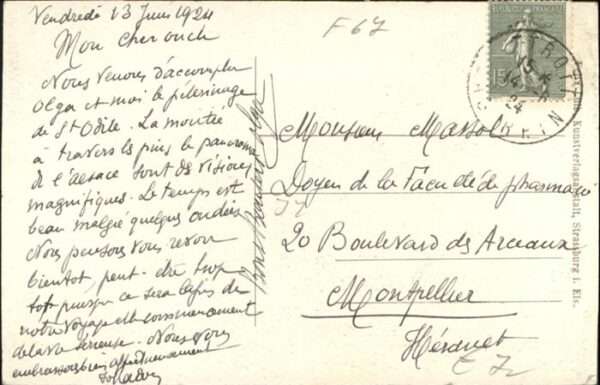 Vendredi 13 Juin 1924
Mon cher oncle
Nous venons d'accomplir
Olga et moi le pèlerinage
de St Odile. La montée
à travers les pins le panorama
de l'alsace sont des visions
magnifiques. Le temps est
beau malgré quelques ondées
Nous pensons vous revoir
bientôt, peut-être trop
tôt puisque ce sera la fin de
notre voyage et le commencement
de la vie sérieuse. Nous vous
embrassons bien affectueusement
F 67
Monsieur Massol
Doyen de la Faculté de pharmacie
20 Boulevard des Arceaux
Montpellier
Hérault
REPUBLIQUE FRANÇAISE
15
OTTROTT
Kunstverlagsanstalt, Strassburg i. Els.